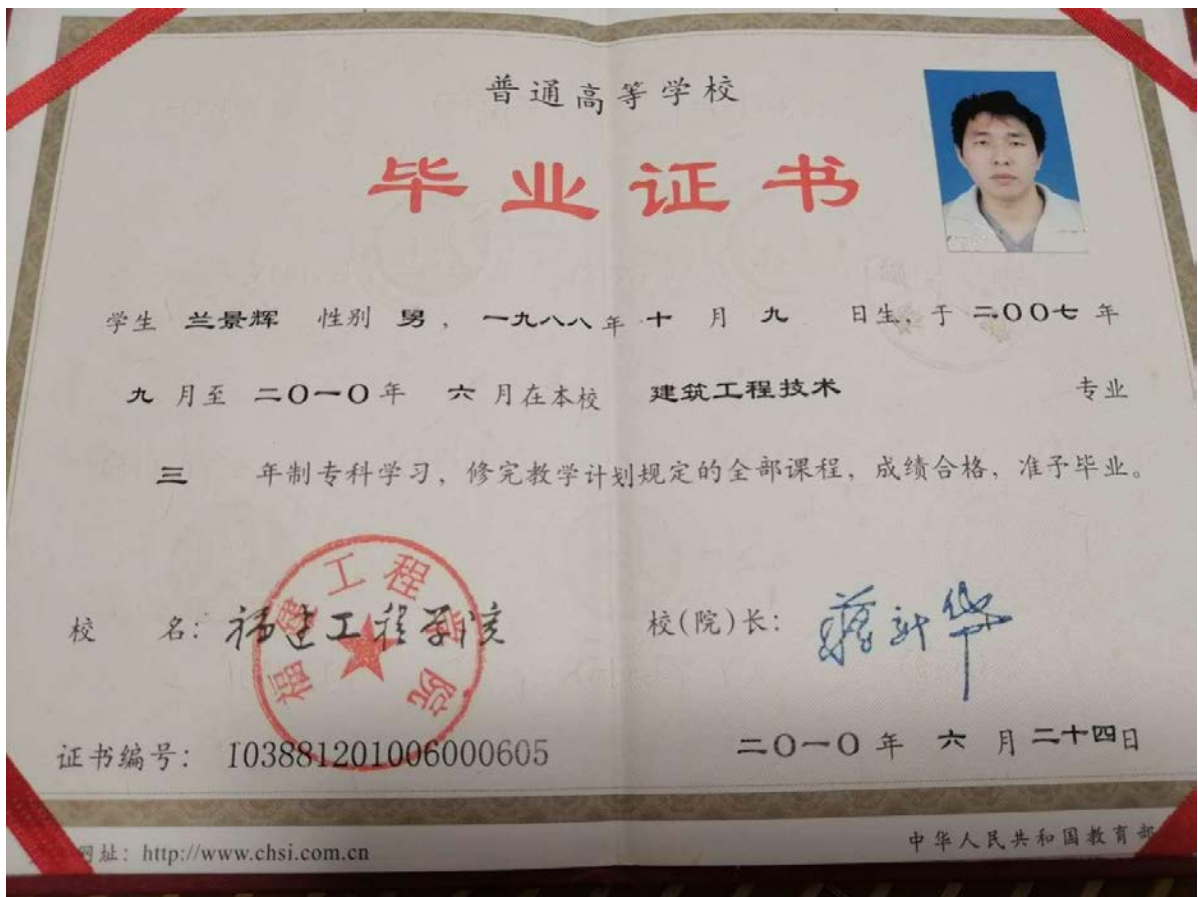 普通高等学校
毕业证书
学生 兰景辉 性别 男，一九八八年十月九日生，于二〇〇七年
九月至二〇一〇年六月在本校 建筑工程技术 专业
三年制专科学习，修完教学计划规定的全部课程，成绩合格，准予毕业。
校 名：福建工程学院
福建工程学院
校(院)长：蒋新华
证书编号：103881201006000605
二〇一〇年六月二十四日
网址：http://www.chsi.com.cn
中华人民共和国教育部